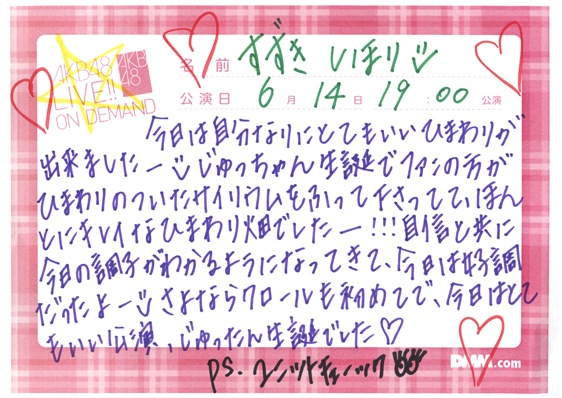 AKB48
LIVE!!
ON DEMAND
AKB
48
名前 すずき しほり
公演日 6月 14日 19:00 公演
今日は自分なりにとてもいいひまわりが
出来ましたー じゅっちゃん生誕でファンの方が
ひまわりのついたサイリウムをふって下さってて、ほん
とにキレイなひまわり畑でしたー!!!自信と共に
今日の調子がわかるようになってきて、今日は好調
だったよー さよならクロールも初めてで、今日はとて
もいい公演、じゅったん生誕でした♡
PS. ユニットチェーック
DMM.com